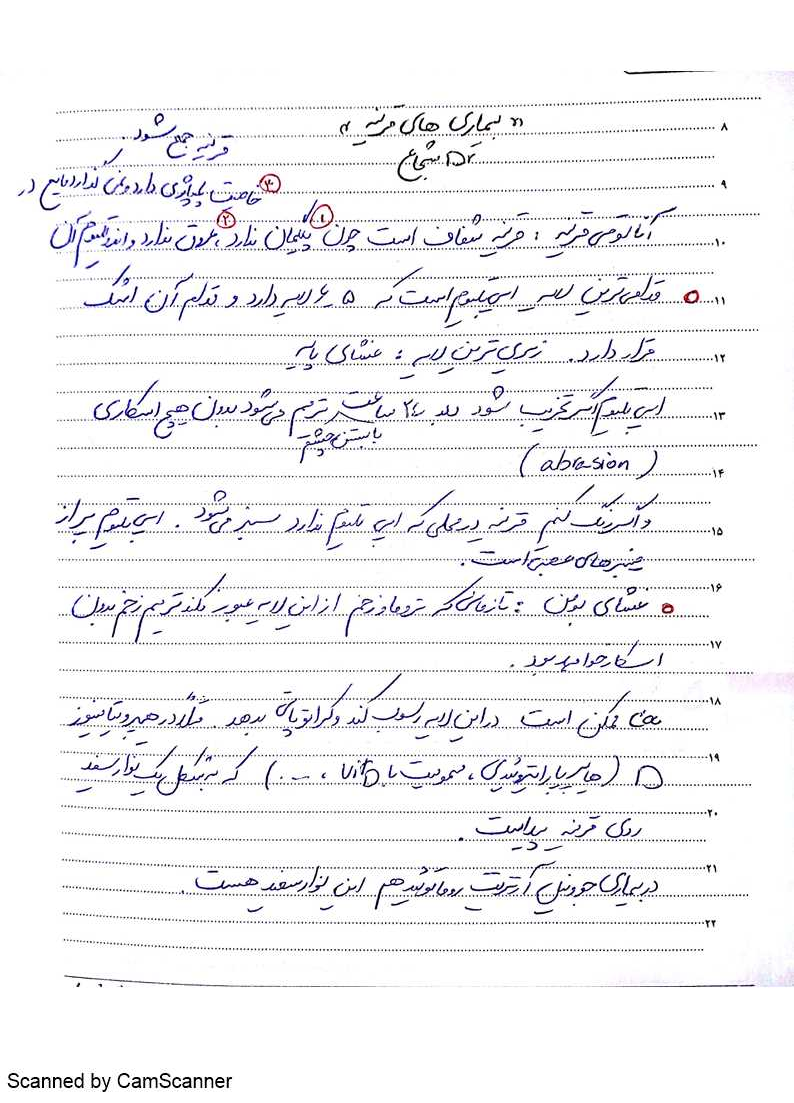 « بیماری های قرنیه »
۸
Dr شجاع
قرنیه جمع شود.
۹
۳ خاصیت پمپاژی دارد و نمی گذارد مایع در
۱۰
آناتومی قرنیه : قرنیه شفاف است چون ۱ پیگمان ندارد، ۲ عروق ندارد و اندوتلیوم آن
۱۱
قدامی ترین لایه اپی تلیوم است که ۵ - ۶ لایه دارد و قدام آن اشک
۱۲
قرار دارد. زیری ترین لایه : غشای پایه
۱۳
اپی تلیوم اگر تخریب شود بعد ۲۴ ساعت ترمیم می شود بدون هیچ اسکاری
با بستن چشم
۱۴
(abrasion)
۱۵
و اگر رنگ کنیم قرنیه در محلی که اپی تلیوم ندارد سبز می شود. اپی تلیوم پر از
فیبرهای عصبی است.
۱۶
غشای بومن : تا زمانی که تروما و زخم از این لایه عبور نکند ترمیم زخم بدون
۱۷
اسکار خواهد بود.
۱۸
Ca ممکن است در این لایه رسوب کند و کراتوپاتی بدهد. مثلا در هیپرویتامینوز
۱۹
D (هایپرپاراتیروئیدی، مسمومیت با VitD، ...) که به شکل یک نوار سفید
۲۰
روی قرنیه پیداست.
۲۱
در بیماری جوونیل آرتریت روماتوئید هم این نوار سفید هست.
۲۲
Scanned by CamScanner